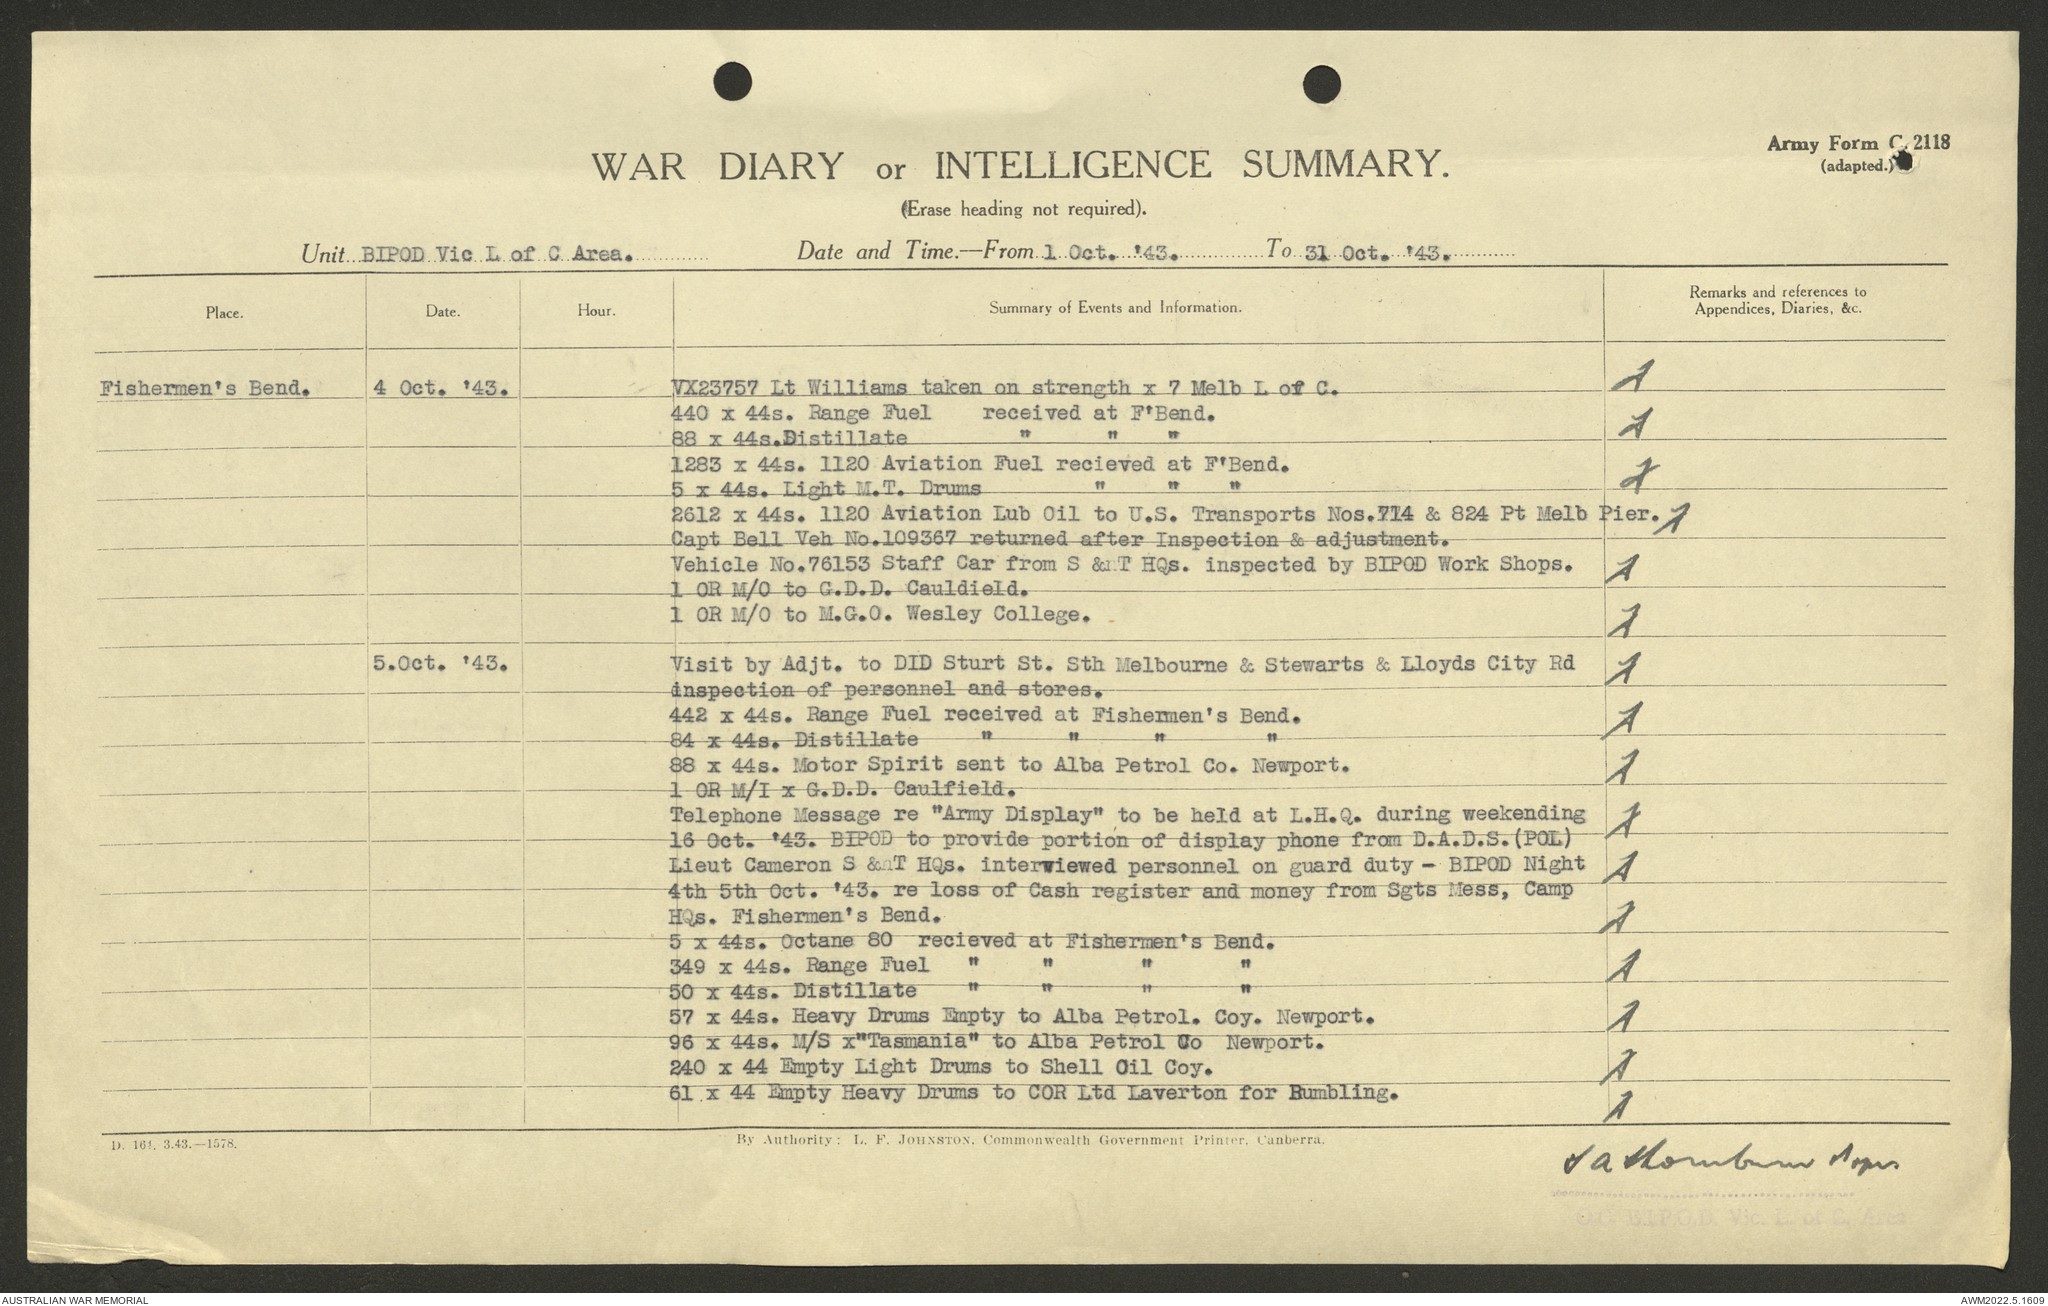 Army Form C. 2118
(adapted.)
WAR DIARY or INTELLIGENCE SUMMARY.
(Erase heading not required).
Unit BIPOD Vic L of C Area. Date and Time.—From 1 Oct. '43. To 31 Oct. '43.
Place. Date. Hour. Summary of Events and Information. Remarks and references to
Appendices, Diaries, &c.
Fishermen's Bend. 4 Oct. '43. VX23757 Lt Williams taken on strength x 7 Melb L of C.
440 x 44s. Range Fuel received at F'Bend.
88 x 44s.Distillate " " "
1283 x 44s. 1120 Aviation Fuel recieved at F'Bend.
5 x 44s. Light M.T. Drums " " "
2612 x 44s. 1120 Aviation Lub Oil to U.S. Transports Nos.714 & 824 Pt Melb Pier.
Capt Bell Veh No.109367 returned after Inspection & adjustment.
Vehicle No.76153 Staff Car from S & T HQs. inspected by BIPOD Work Shops.
1 OR M/O to G.D.D. Cauldield.
1 OR M/O to M.G.O. Wesley College.
5.Oct. '43. Visit by Adjt. to DID Sturt St. Sth Melbourne & Stewarts & Lloyds City Rd
inspection of personnel and stores.
442 x 44s. Range Fuel received at Fishermen's Bend.
84 x 44s. Distillate " " " "
88 x 44s. Motor Spirit sent to Alba Petrol Co. Newport.
1 OR M/I x G.D.D. Caulfield.
Telephone Message re "Army Display" to be held at L.H.Q. during weekending
16 Oct. '43. BIPOD to provide portion of display phone from D.A.D.S.(POL)
Lieut Cameron S & T HQs. interviewed personnel on guard duty - BIPOD Night
4th 5th Oct. '43. re loss of Cash register and money from Sgts Mess, Camp
HQs. Fishermen's Bend.
5 x 44s. Octane 80 recieved at Fishermen's Bend.
349 x 44s. Range Fuel " " " "
50 x 44s. Distillate " " " "
57 x 44s. Heavy Drums Empty to Alba Petrol. Coy. Newport.
96 x 44s. M/S x"Tasmania" to Alba Petrol Co Newport.
240 x 44 Empty Light Drums to Shell Oil Coy.
61 x 44 Empty Heavy Drums to COR Ltd Laverton for Rumbling.
D. 164. 3.43.—1578. By Authority: L. F. JOHNSTON, Commonwealth Government Printer, Canberra.
B.I.P.O.D. Vic. L. of C. Area
AUSTRALIAN WAR MEMORIAL AWM2022.5.1609